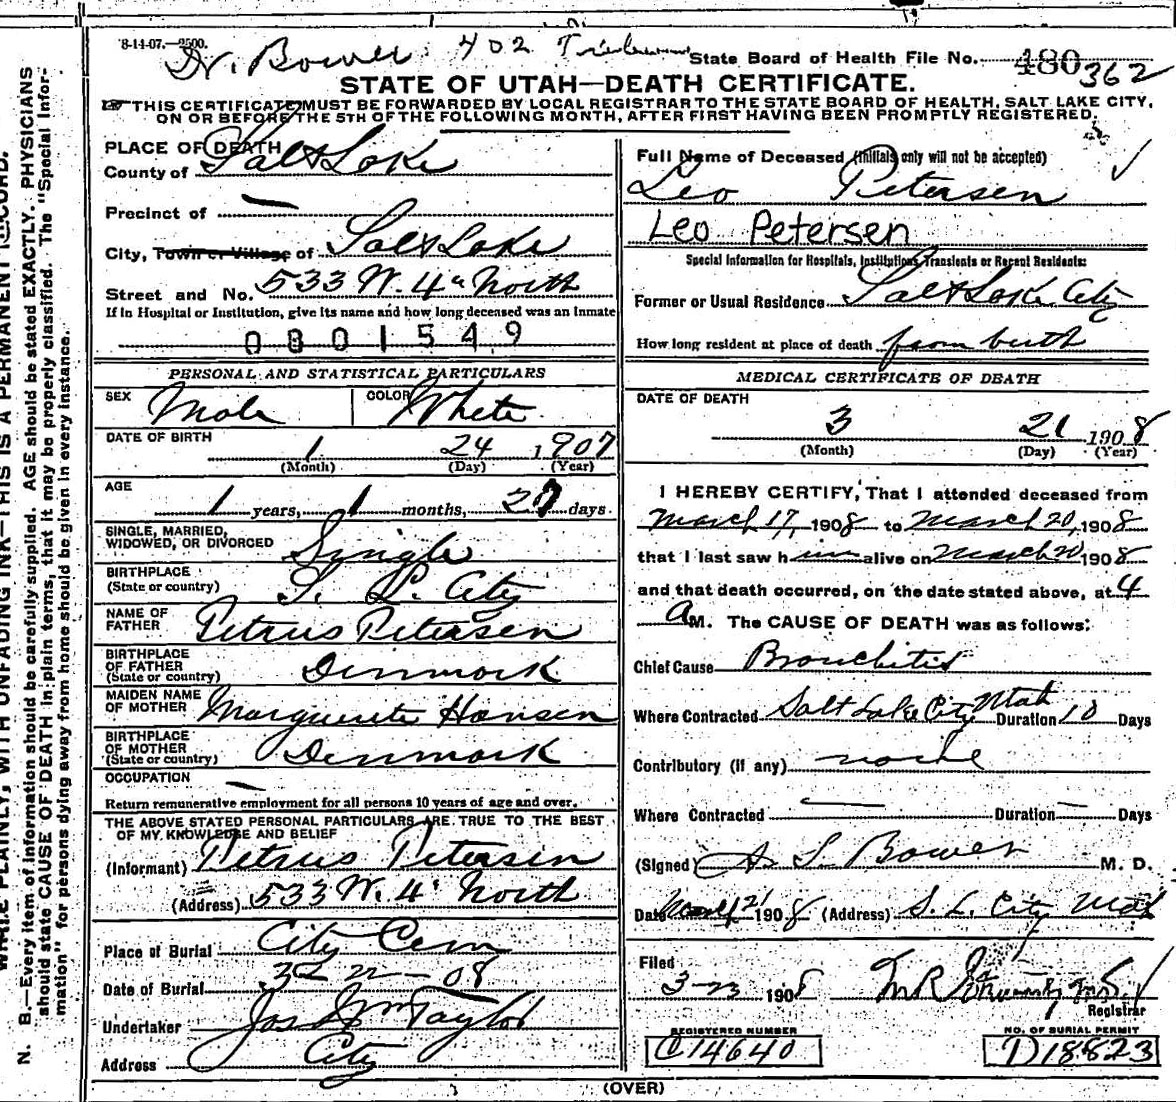 8-14-07.—2500.
Dr. Bower 402
State Board of Health File No. 480 362
STATE OF UTAH—DEATH CERTIFICATE.
THIS CERTIFICATE MUST BE FORWARDED BY LOCAL REGISTRAR TO THE STATE BOARD OF HEALTH, SALT LAKE CITY,
ON OR BEFORE THE 5TH OF THE FOLLOWING MONTH, AFTER FIRST HAVING BEEN PROMPTLY REGISTERED.
PLACE OF DEATH
County of Salt Lake
Precinct of —
City, Town or Village of Salt Lake
Street and No. 533 W. 4th North
If in Hospital or Institution, give its name and how long deceased was an inmate
0801549
PERSONAL AND STATISTICAL PARTICULARS
SEX Male COLOR White
DATE OF BIRTH
1 24 1907
(Month) (Day) (Year)
AGE
1 years, 1 months, 27 days
SINGLE, MARRIED,
WIDOWED, OR DIVORCED Single
BIRTHPLACE
(State or country) S. L. City
NAME OF
FATHER Petrus Petersen
BIRTHPLACE
OF FATHER
(State or country) Denmark
MAIDEN NAME
OF MOTHER Marguerite Hansen
BIRTHPLACE
OF MOTHER
(State or country) Denmark
OCCUPATION —
Return remunerative employment for all persons 10 years of age and over.
THE ABOVE STATED PERSONAL PARTICULARS ARE TRUE TO THE BEST
OF MY KNOWLEDGE AND BELIEF
(Informant) Petrus Petersen
(Address) 533 W. 4' North
Place of Burial City Cem
Date of Burial 3 - 22 - 08
Undertaker Jos Wm Taylor
Address City
Full Name of Deceased (Initials only will not be accepted)
Leo Petersen
Leo Petersen
Special Information for Hospitals, Institutions, Transients or Recent Residents:
Former or Usual Residence Salt Lake City
How long resident at place of death from birth
MEDICAL CERTIFICATE OF DEATH
DATE OF DEATH
3 21 1908
(Month) (Day) (Year)
I HEREBY CERTIFY, That I attended deceased from
March 17, 1908 to March 20, 1908
that I last saw him alive on March 20 1908
and that death occurred, on the date stated above, at 4
A M. The CAUSE OF DEATH was as follows:
Chief Cause Bronchitis
Where Contracted Salt Lake City Utah Duration 10 Days
Contributory (if any) none
Where Contracted — Duration — Days
(Signed) A S Bower M. D.
Date March 21 1908 (Address) S. L. City Utah
Filed
3-23 1908 M R
Registrar
REGISTERED NUMBER
C14640
NO. OF BURIAL PERMIT
D18823
(OVER)
N. B.—Every item of information should be carefully supplied. AGE should be stated EXACTLY. PHYSICIANS
should state CAUSE OF DEATH in plain terms, that it may be properly classified. The "Special Infor-
mation" for persons dying away from home should be given in every instance.
WRITE PLAINLY, WITH UNFADING INK—THIS IS A PERMANENT RECORD.